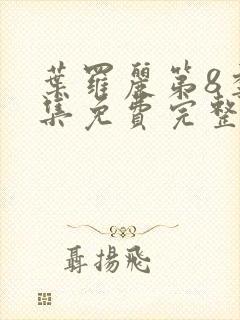 葉羅麗第8
集免費完整
聶揚飛